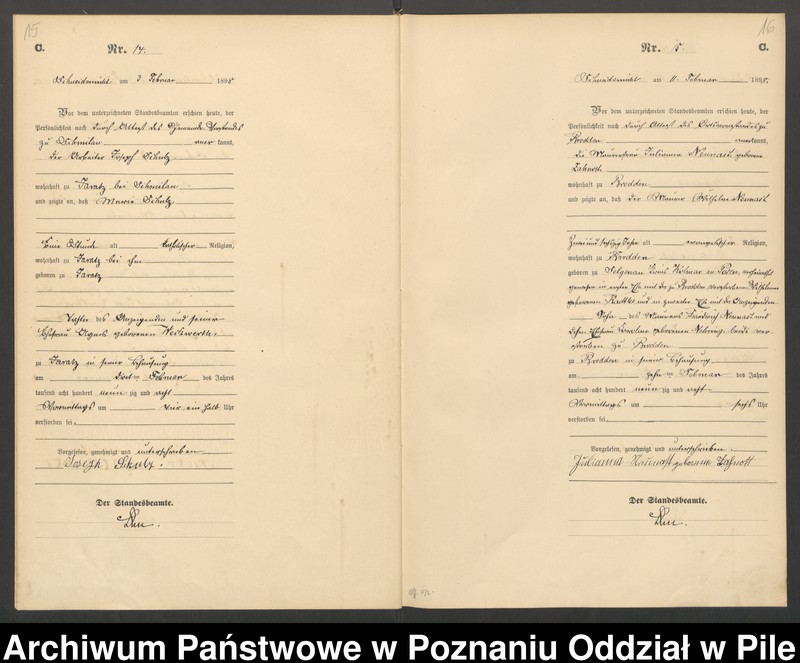 15
C.
Nr. 14.
Schneidemühl am 3. Februar 1898
Vor dem unterzeichneten Standesbeamten erschien heute, der
Persönlichkeit nach durch Attest des Gemeinde Vorstandes
zu Schmilau anerkannt,
der Arbeiter Joseph Schulz
wohnhaft zu Taratz bei Schmilau
und zeigte an, daß Marie Schulz
Eine Stunde alt katholischer Religion,
wohnhaft zu Taratz bei ihm
geboren zu Taratz
Tochter des Anzeigenden und seiner
Ehefrau Agnes geborenen Weckwerth
zu Taratz in seiner Behausung
am Februar des Jahres
tausend acht hundert neunzig und acht
Vormittags um ein halb Uhr
verstorben sei.
Vorgelesen, genehmigt und unterschrieben
Joseph Schulz.
Der Standesbeamte.
16
C.
Nr. 15.
Schneidemühl am 11. Februar 1898.
Vor dem unterzeichneten Standesbeamten erschien heute, der
Persönlichkeit nach durch Attest des Ortsvorstandes zu
Brodden anerkannt,
die Maurerfrau Julianna Neumast geborene
wohnhaft zu Brodden
und zeigte an, daß der Maurer Wilhelm Neumast
Zwei und sechzig Jahre alt evangelischer Religion,
wohnhaft zu Brodden
geboren zu Selgenau Kreis Kolmar in Posen, verheirathet
gewesen in erster Ehe mit der zu Brodden verstorbenen Wilhelmine
geborenen Radtke und in zweiter Ehe mit der Anzeigenden
Sohn des Maurers Friedrich Neumast und
dessen Ehefrau Caroline geborenen Nehring, beide ver-
storben zu Brodden
zu Brodden in seiner Behausung
am zehn Februar des Jahres
tausend acht hundert neunzig und acht
Vormittags um sechs Uhr
verstorben sei.
Vorgelesen, genehmigt und unterschrieben.
Julianna Neumast geborene
Der Standesbeamte.
Archiwum Państwowe w Poznaniu Oddział w Pile